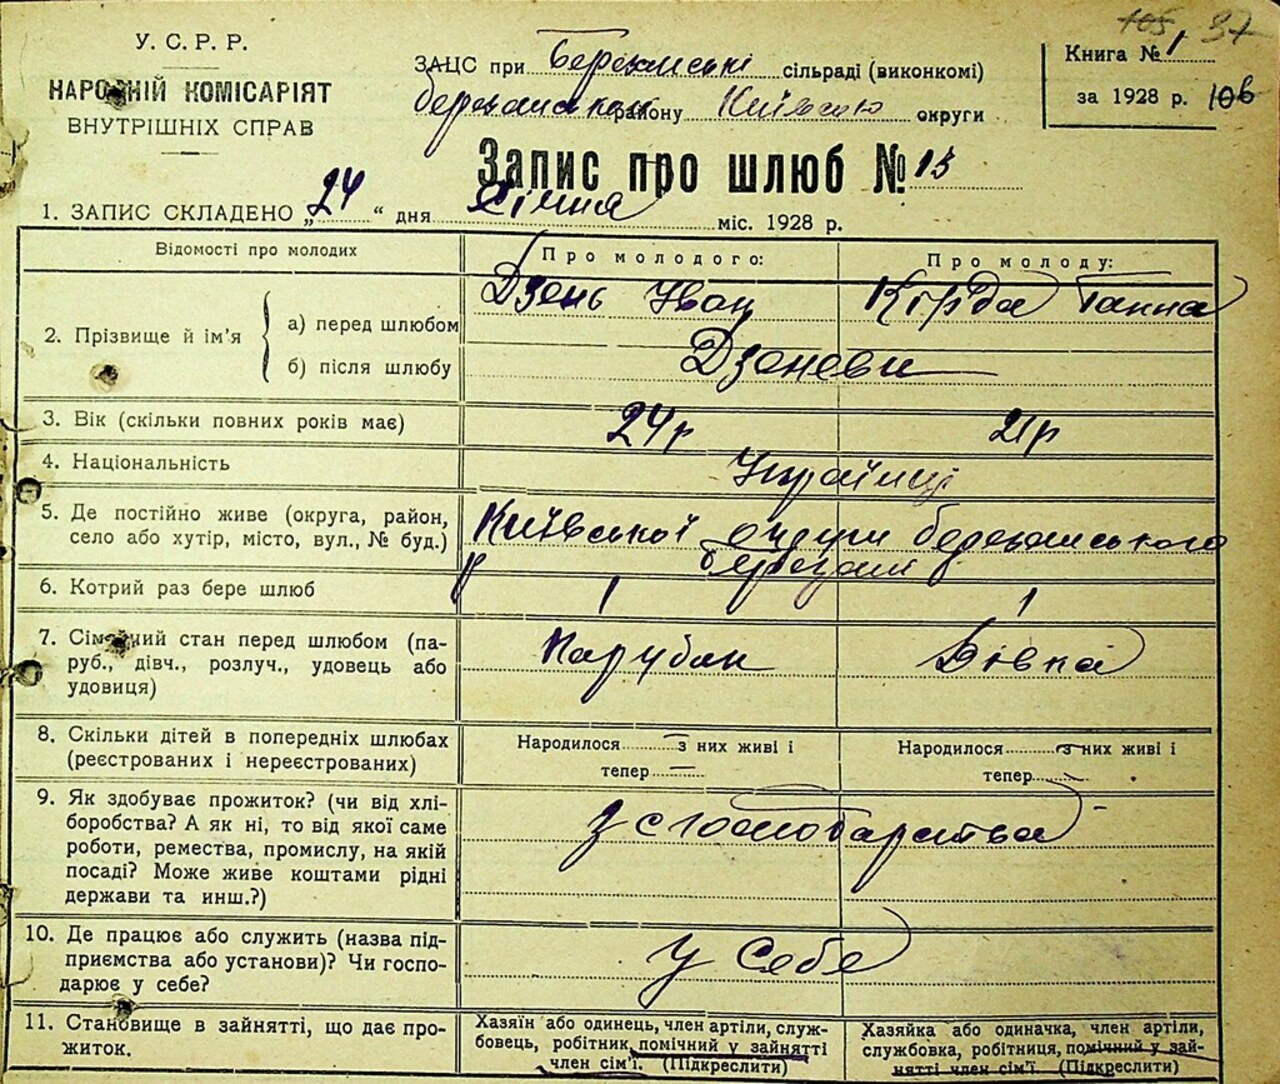 105 37
У. С. Р. Р.
НАРОДНІЙ КОМІСАРІЯТ
ВНУТРІШНІХ СПРАВ
ЗАЦС при Березанські сільраді (виконкомі)
березанськом району Київською округи
Книга № 1
за 1928 р. 106
Запис про шлюб № 13
1. ЗАПИС СКЛАДЕНО „24“ дня Січня міс. 1928 р.
Відомості про молодих
Про молодого:
Про молоду:
2. Прізвище й ім'я
а) перед шлюбом
Дзень Іван
Кірда Ганна
б) після шлюбу
Дзеневи
3. Вік (скільки повних років має)
24 р
21 р
4. Національність
Українці
5. Де постійно живе (округа, район,
село або хутір, місто, вул., № буд.)
Київської округи березанського
р березані
6. Котрий раз бере шлюб
1
1
7. Сімейний стан перед шлюбом (па-
руб., дівч., розлуч., удовець або
удовиця)
Парубок
Дівка
8. Скільки дітей в попередніх шлюбах
(реєстрованих і нереєстрованих)
Народилося — з них живі і
тепер —
Народилося — з них живі і
тепер —
9. Як здобуває прожиток? (чи від хлі-
боробства? А як ні, то від якої саме
роботи, ремества, промислу, на якій
посаді? Може живе коштами рідні
держави та инш.?)
З с господарства
10. Де працює або служить (назва під-
приємства або установи)? Чи госпо-
дарює у себе?
У себе
11. Становище в зайнятті, що дає про-
житок.
Хазяїн або одинець, член артіли, служ-
бовець, робітник, помічний у зайнятті
член сім'ї. (Підкреслити)
Хазяйка або одиначка, член артіли,
службовка, робітниця, помічний у зай-
нятті член сім'ї. (Підкреслити)